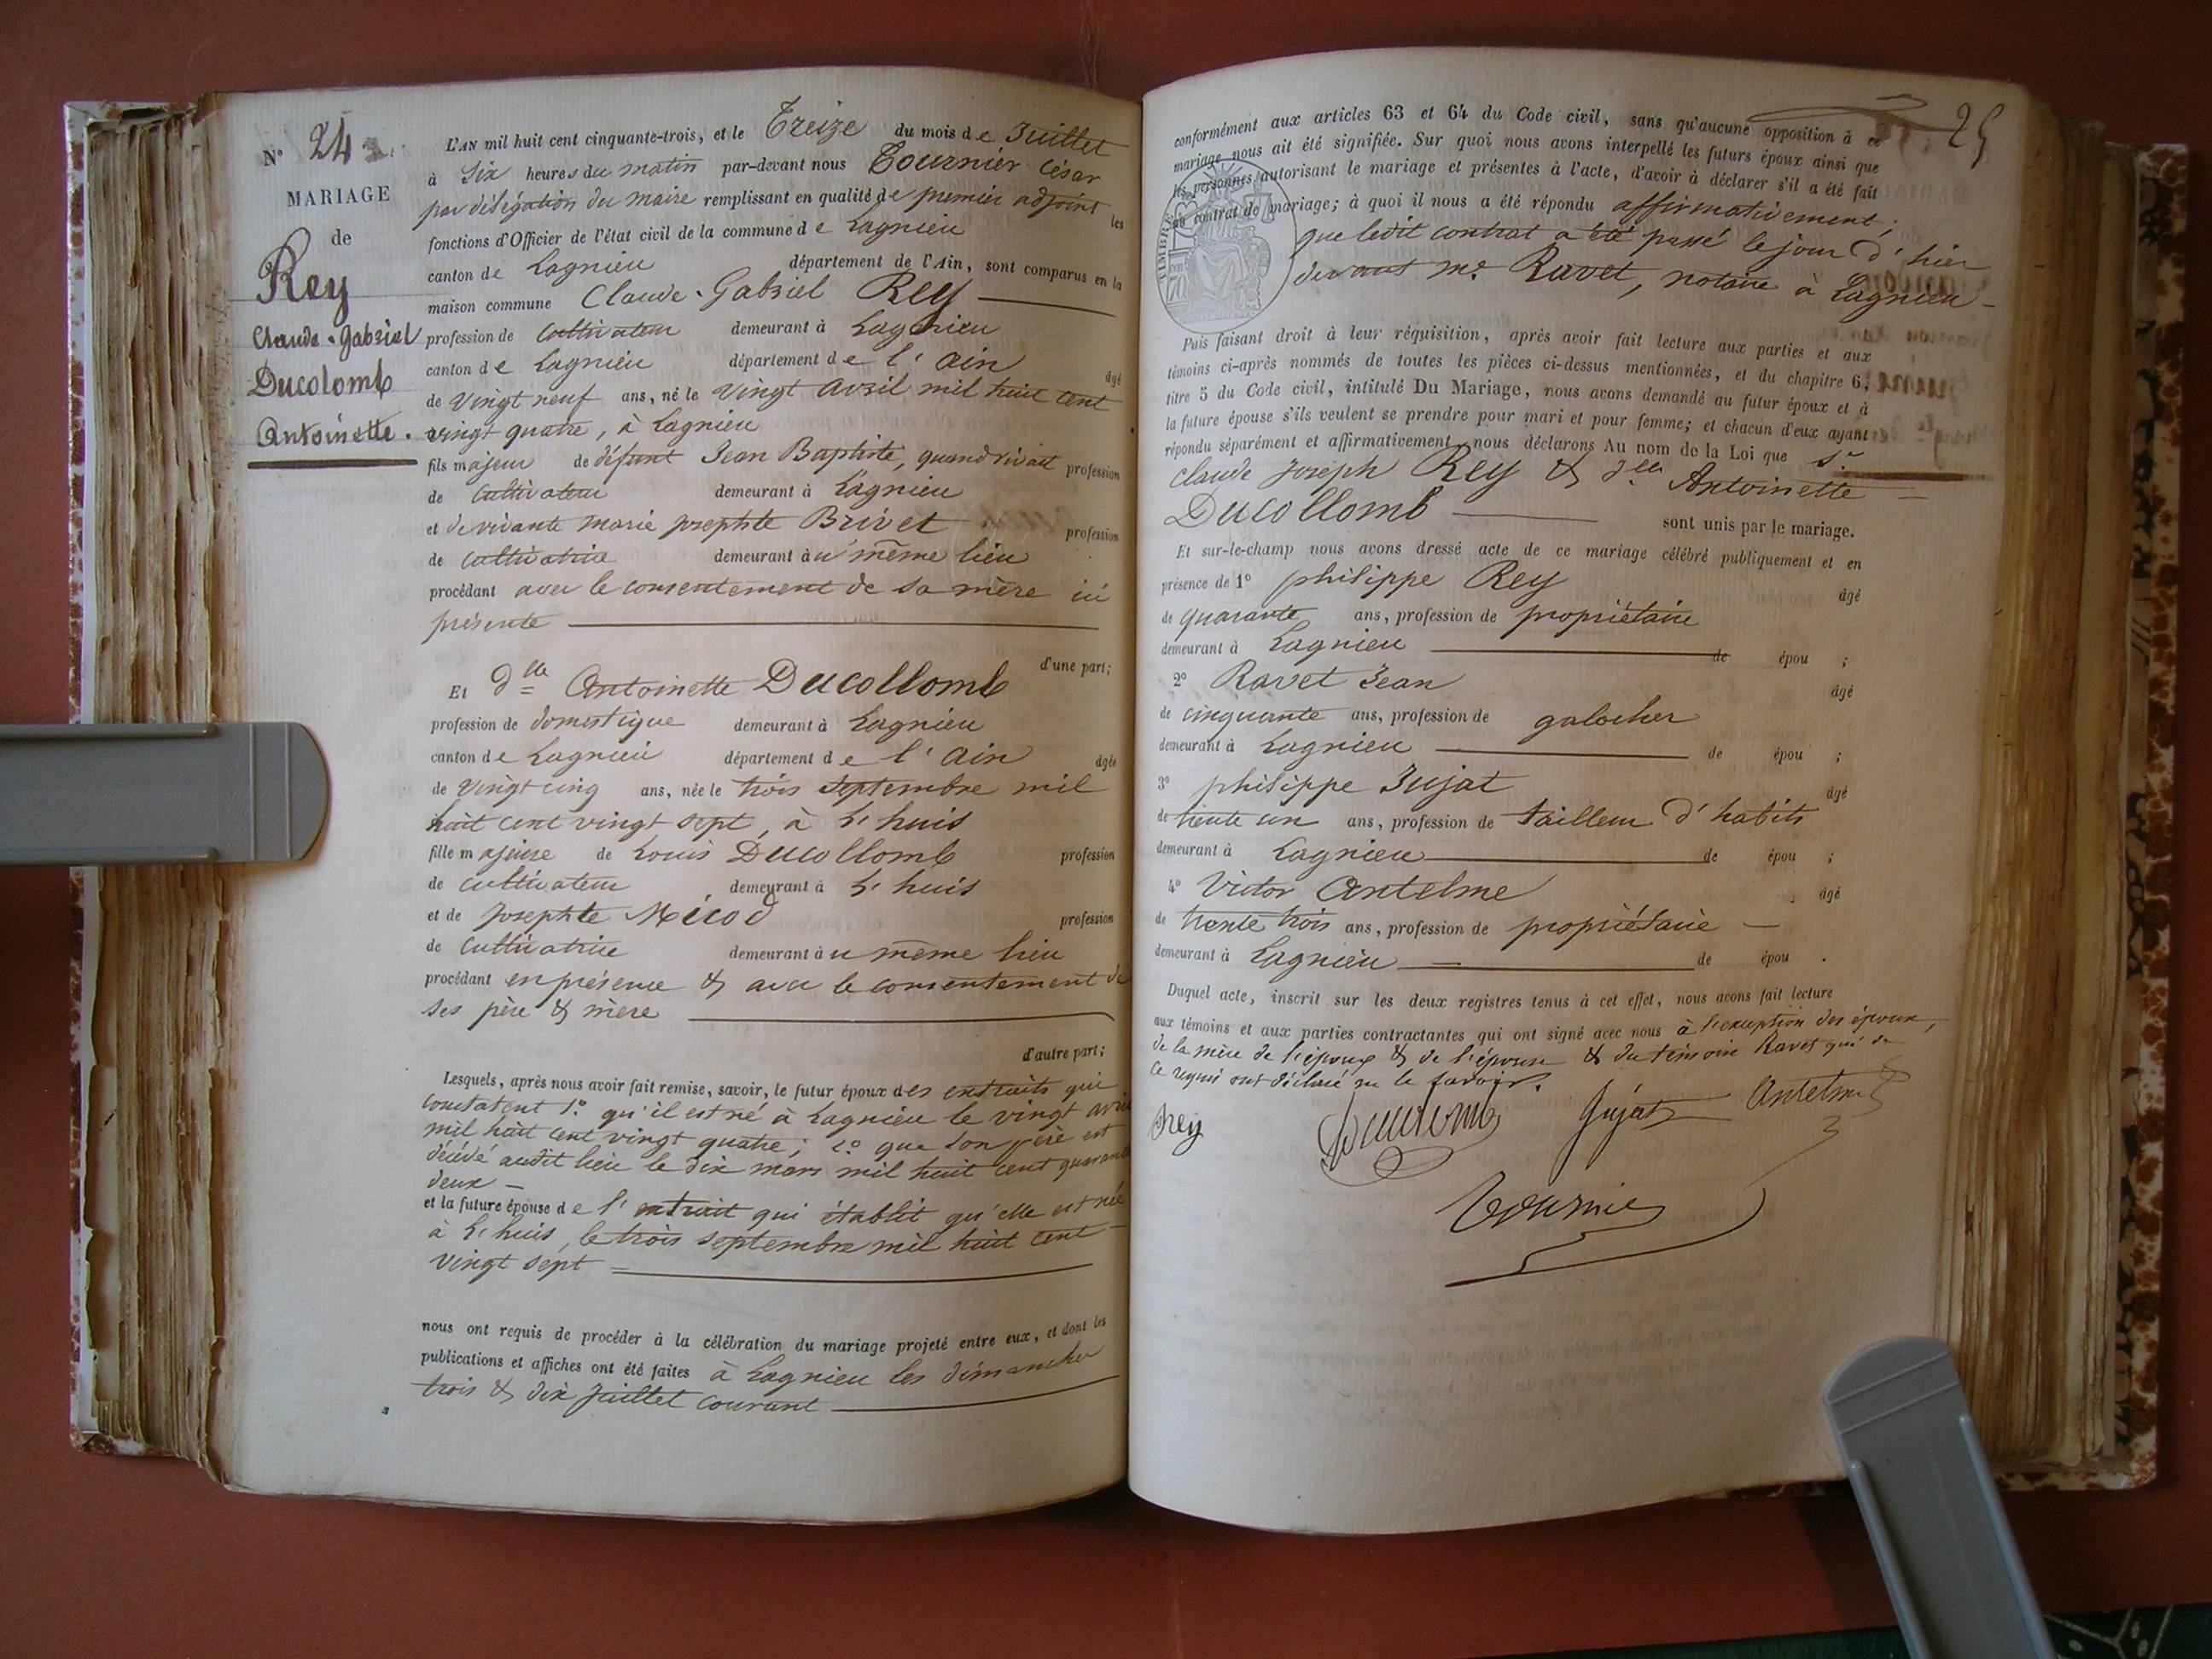 N° 24
MARIAGE
de
Rey
Claude-Gabriel
Ducolomb
Antoinette.
L'AN mil huit cent cinquante-trois, et le Treize du mois de Juillet
à Six heures du matin par-devant nous Tournier César
par délégation du maire remplissant en qualité de premier adjoint les
fonctions d'Officier de l'état civil de la commune de Lagnieu
canton de Lagnieu département de l'Ain, sont comparus en la
maison commune Claude-Gabriel Rey
profession de cultivateur demeurant à Lagnieu
canton de Lagnieu département de l'Ain âgé
de vingt neuf ans, né le vingt avril mil huit cent
vingt quatre, à Lagnieu
fils majeur de défunt Jean Baptiste, quand vivait profession
de cultivateur demeurant à Lagnieu
et de vivante marie josephte Brivet profession
de cultivatrice demeurant au même lieu
procédant avec le consentement de sa mère ici
présente
d'une part;
Et dlle Antoinette Ducollomb
profession de domestique demeurant à Lagnieu
canton de Lagnieu département de l'Ain âgée
de vingt cinq ans, née le trois septembre mil
huit cent vingt sept, à L'huis
fille majeure de Louis Ducollomb profession
de cultivateur demeurant à L'huis
et de josephte Micod profession
de cultivatrice demeurant au même lieu
procédant en présence & avec le consentement de
ses père & mère
d'autre part;
Lesquels, après nous avoir fait remise, savoir, le futur époux des extraits qui
constatent 1° qu'il est né à Lagnieu le vingt avril
mil huit cent vingt quatre; 2° que son père est
décédé audit lieu le dix mars mil huit cent quarante
deux
et la future épouse de l'extrait qui établit qu'elle est née
à L'huis, le trois septembre mil huit cent
vingt sept
nous ont requis de procéder à la célébration du mariage projeté entre eux, et dont les
publications et affiches ont été faites à Lagnieu les dimanches
trois & dix juillet courant
25
conformément aux articles 63 et 64 du Code civil, sans qu'aucune opposition à ce
mariage nous ait été signifiée. Sur quoi nous avons interpellé les futurs époux ainsi que
les personnes autorisant le mariage et présentes à l'acte, d'avoir à déclarer s'il a été fait
un contrat de mariage; à quoi il nous a été répondu affirmativement;
que ledit contrat a été passé le jour d'hier
devant me. Ravet, notaire à Lagnieu
Puis faisant droit à leur réquisition, après avoir fait lecture aux parties et aux
témoins ci-après nommés de toutes les pièces ci-dessus mentionnées, et du chapitre 6,
titre 5 du Code civil, intitulé Du Mariage, nous avons demandé au futur époux et à
la future épouse s'ils veulent se prendre pour mari et pour femme; et chacun d'eux ayant
répondu séparément et affirmativement, nous déclarons Au nom de la Loi que Sr.
Claude Joseph Rey & dlle Antoinette
Ducollomb sont unis par le mariage.
Et sur-le-champ nous avons dressé acte de ce mariage célébré publiquement et en
présence de 1° philippe Rey âgé
de quarante ans, profession de propriétaire
demeurant à Lagnieu de épou ;
2° Ravet Jean âgé
de cinquante ans, profession de galocher
demeurant à Lagnieu de épou ;
3° philippe Jujat âgé
de trente un ans, profession de tailleur d'habits
demeurant à Lagnieu de épou ;
4° Victor Antelme âgé
de trente trois ans, profession de propriétaire
demeurant à Lagnieu de épou .
Duquel acte, inscrit sur les deux registres tenus à cet effet, nous avons fait lecture
aux témoins et aux parties contractantes qui ont signé avec nous à l'exception des époux,
de la mère de l'époux & de l'épouse & du témoin Ravet qui de
ce requis ont déclaré ne le savoir.
Rey Ducolomb Jujat Antelme
Tournier